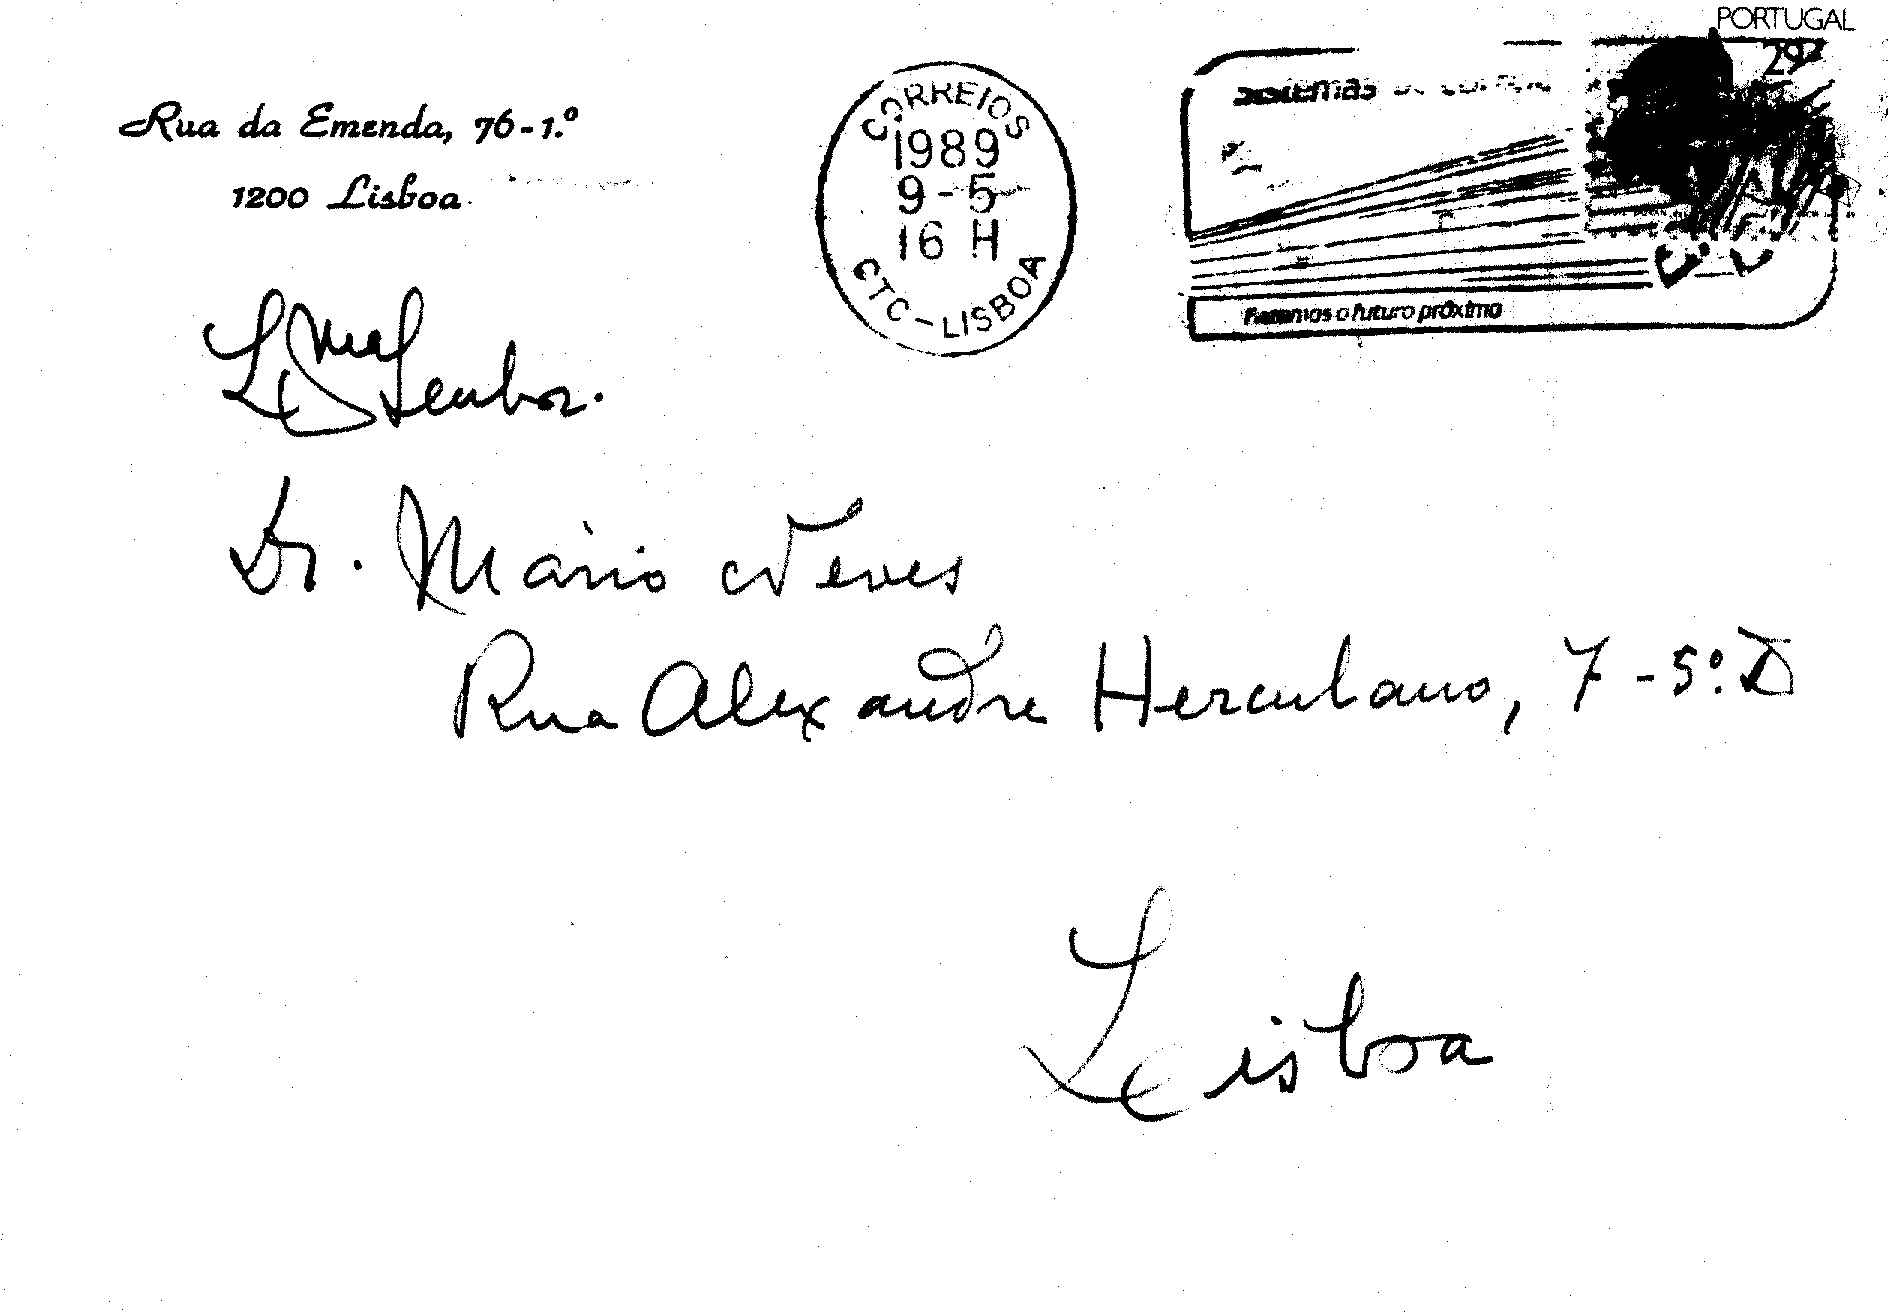 Rua da Emenda, 76-1.º
1200 Lisboa
CORREIOS
1989
9-5
16 H
CTC-LISBOA
PORTUGAL
29
Sistemas
Fazemos o futuro próximo
Ex.mo Senhor.
Dr. Mário Neves
Rua Alexandre Herculano, 7-5.º D
Lisboa